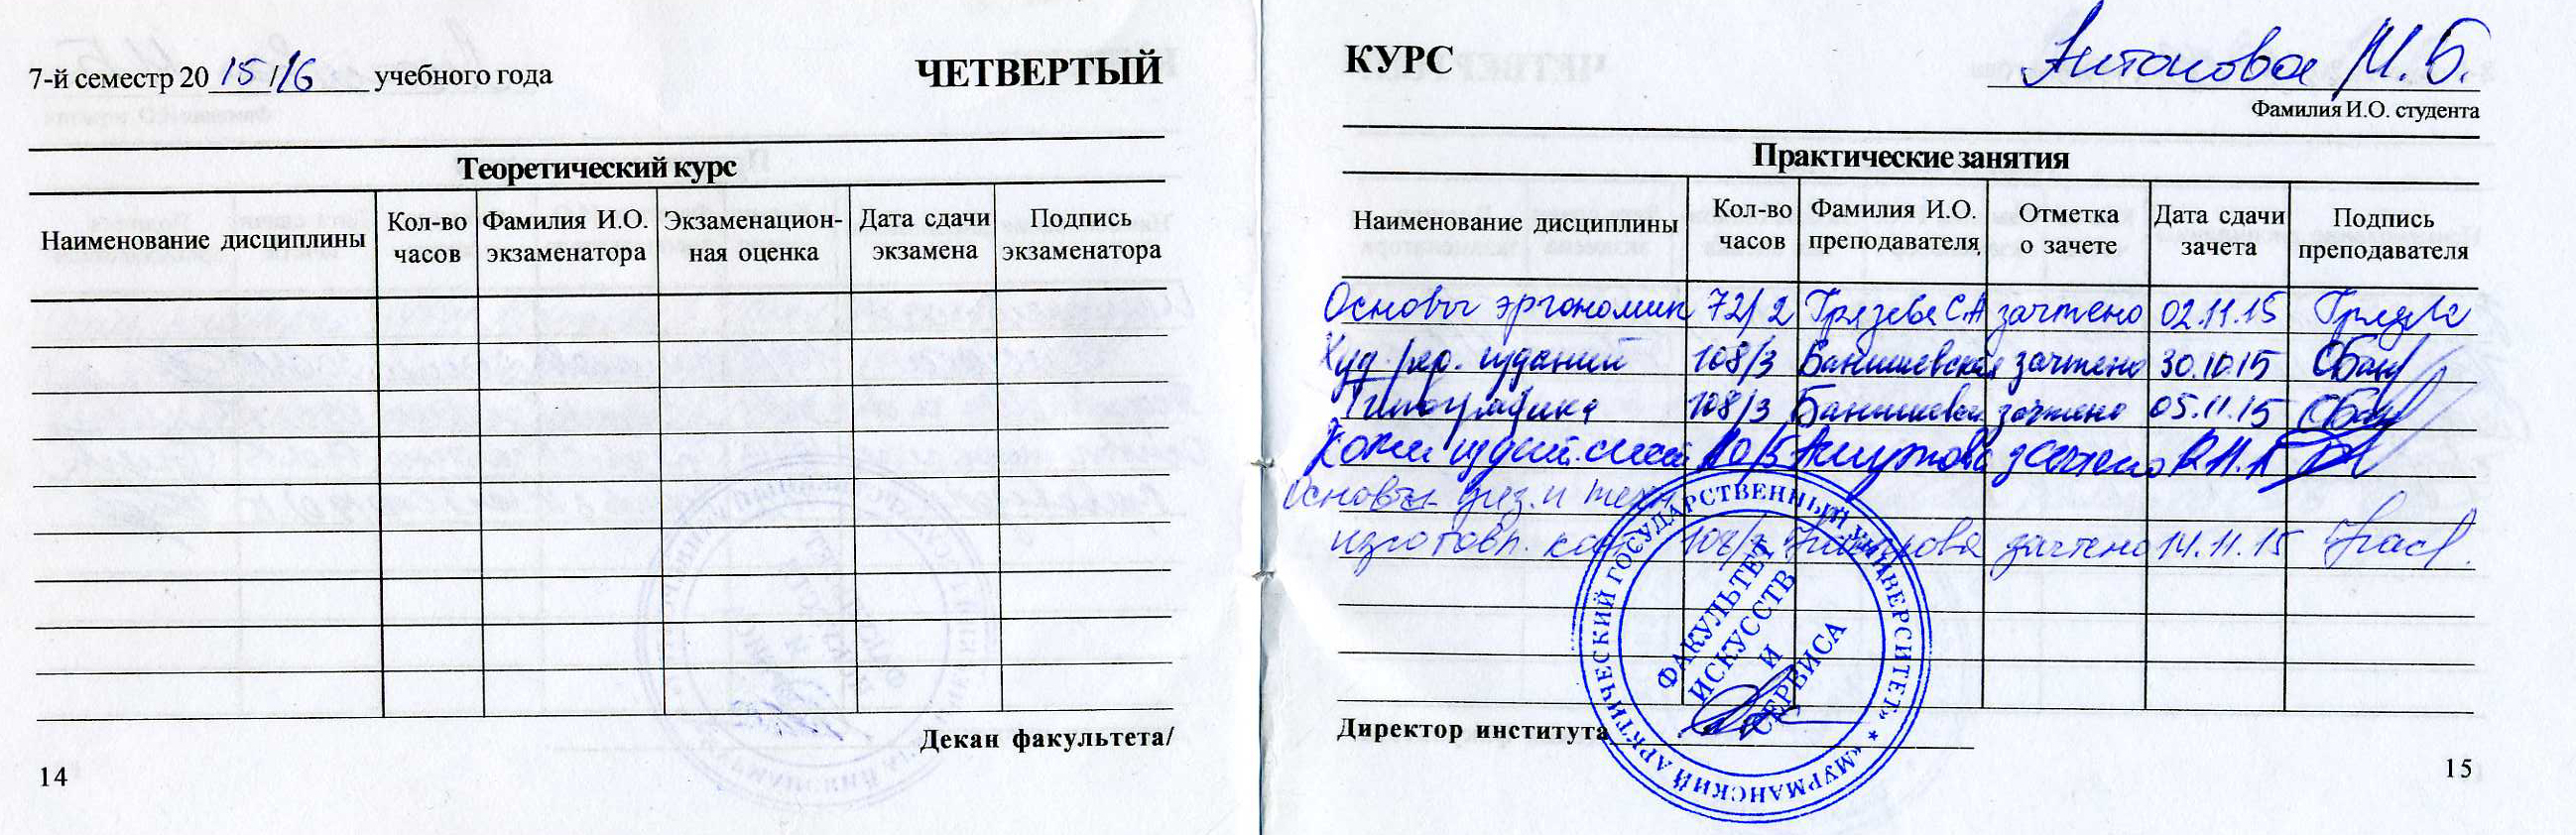 7-й семестр 20 15 / 16 учебного года
ЧЕТВЕРТЫЙ
Теоретический курс
Наименование дисциплины
Кол-во часов
Фамилия И.О. экзаменатора
Экзаменацион-ная оценка
Дата сдачи экзамена
Подпись экзаменатора
Декан факультета/
14
КУРС
Антонова М.Б.
Фамилия И.О. студента
Практические занятия
Наименование дисциплины
Кол-во часов
Фамилия И.О. преподавателя
Отметка о зачете
Дата сдачи зачета
Подпись преподавателя
Основы эргономик 72/2 Грязева С.А зачтено 02.11.15
Худ. ред. изданий 108/3 зачтено 30.10.15
Типографика 108/3 зачтено 05.11.15
зачтено
Основы
изготовл. зачтено 14.11.15
Директор института
«МУРМАНСКИЙ АРКТИЧЕСКИЙ ГОСУДАРСТВЕННЫЙ УНИВЕРСИТЕТ» *
ФАКУЛЬТЕТ
ИСКУССТВ
И
СЕРВИСА
15